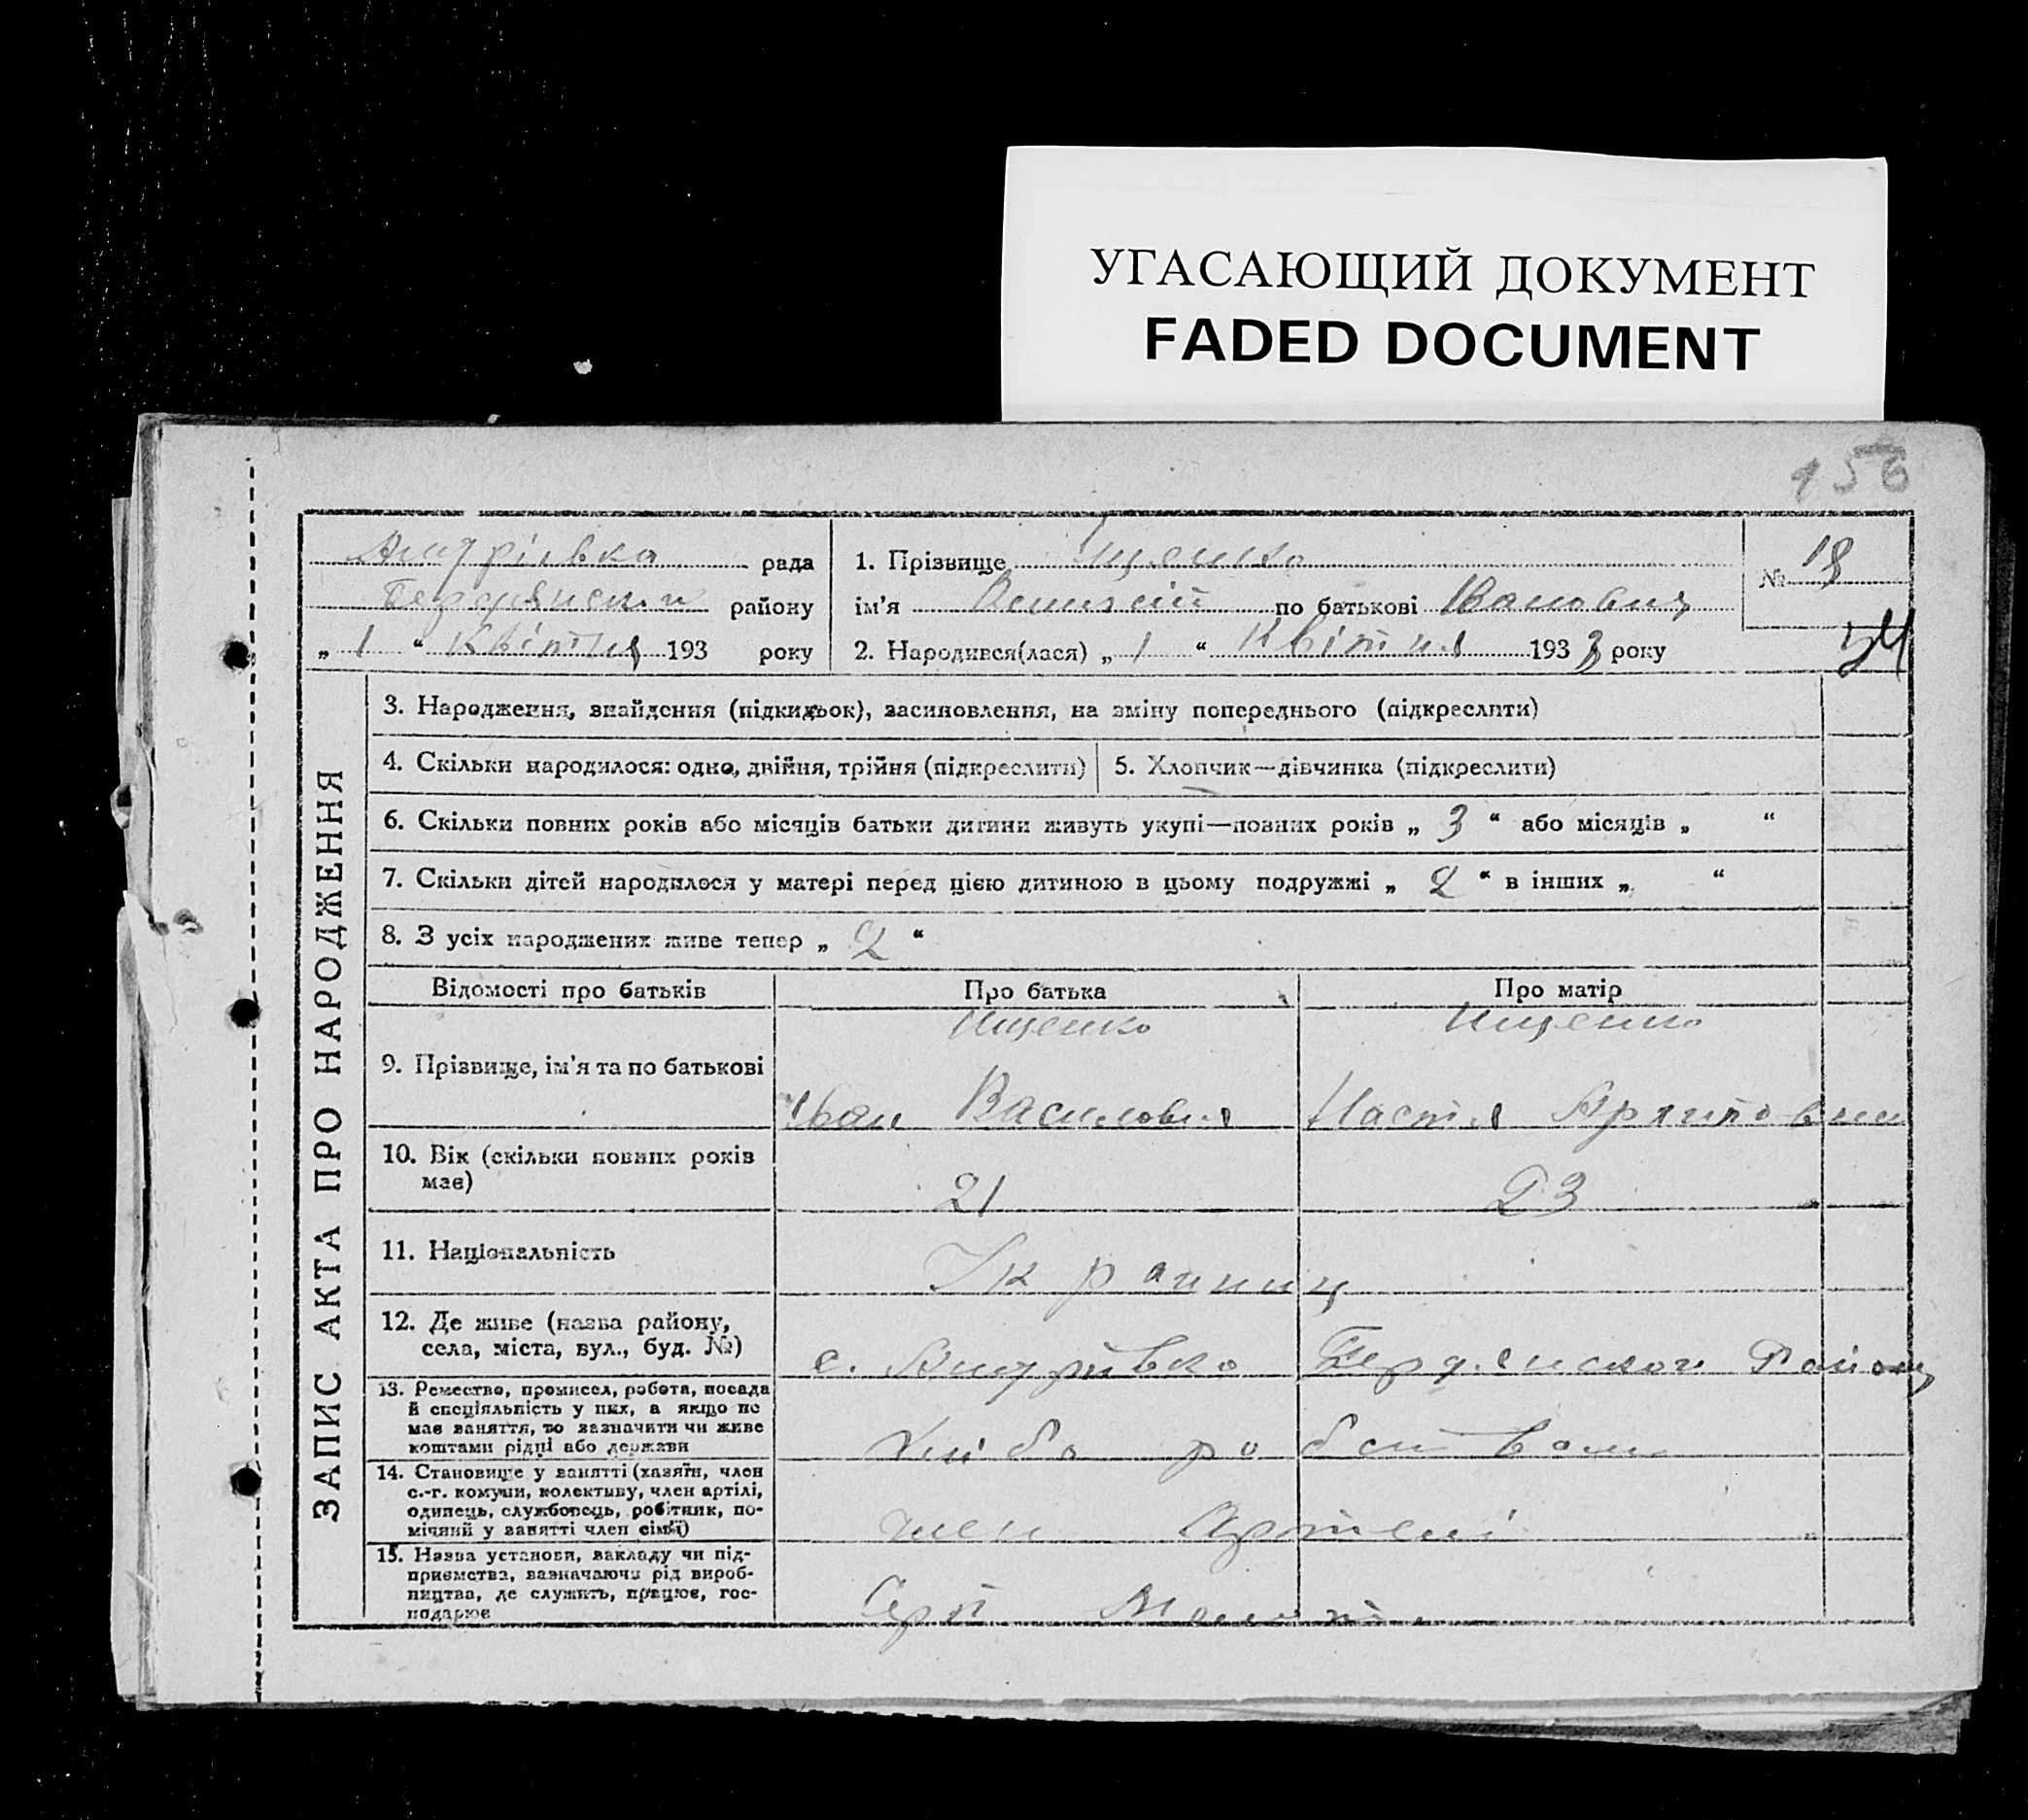 УГАСАЮЩИЙ ДОКУМЕНТ
FADED DOCUMENT
156
Андрівка рада
району
„ 1 “ Квітня 193 року
1. Прізвище Іщенко
ім'я по батькові Іванович
2. Народився(лася) „ 1 “ Квітня 1933 року
№ 18
ЗАПИС АКТА ПРО НАРОДЖЕННЯ
3. Народження, знайдення (підкидьок), засиновлення, на зміну попереднього (підкреслити)
4. Скільки народилося: одно, двійня, трійня (підкреслити)
5. Хлопчик—дівчинка (підкреслити)
6. Скільки повних років або місяців батьки дитини живуть укупі—повних років „ 3 “ або місяців „ “
7. Скільки дітей народилося у матері перед цією дитиною в цьому подружжі „ 2 “ в інших „ “
8. З усіх народжених живе тепер „ 2 “
Відомості про батьків
Про батька
Про матір
9. Прізвище, ім'я та по батькові
Ищенко
Іван Василович
Ищенко
Настя Архиповна
10. Вік (скільки повних років
має)
21
23
11. Національність
Українці
12. Де живе (назва району,
села, міста, вул., буд. №)
с. Андрівка Району
13. Ремество, промисел, робота, посада
й спеціяльність у них, а якщо не
має заняття, то зазначити чи живе
коштами рідні або держави
14. Становище у занятті (хазяїн, член
с.-г. комуни, колективу, член артілі,
одинець, службовець, робітник, по-
мічний у занятті член сім'ї)
член Артелі
15. Назва установи, закладу чи під-
приємства, зазначаючи рід вироб-
ництва, де служить, працює, гос-
подарює
Серп Молот